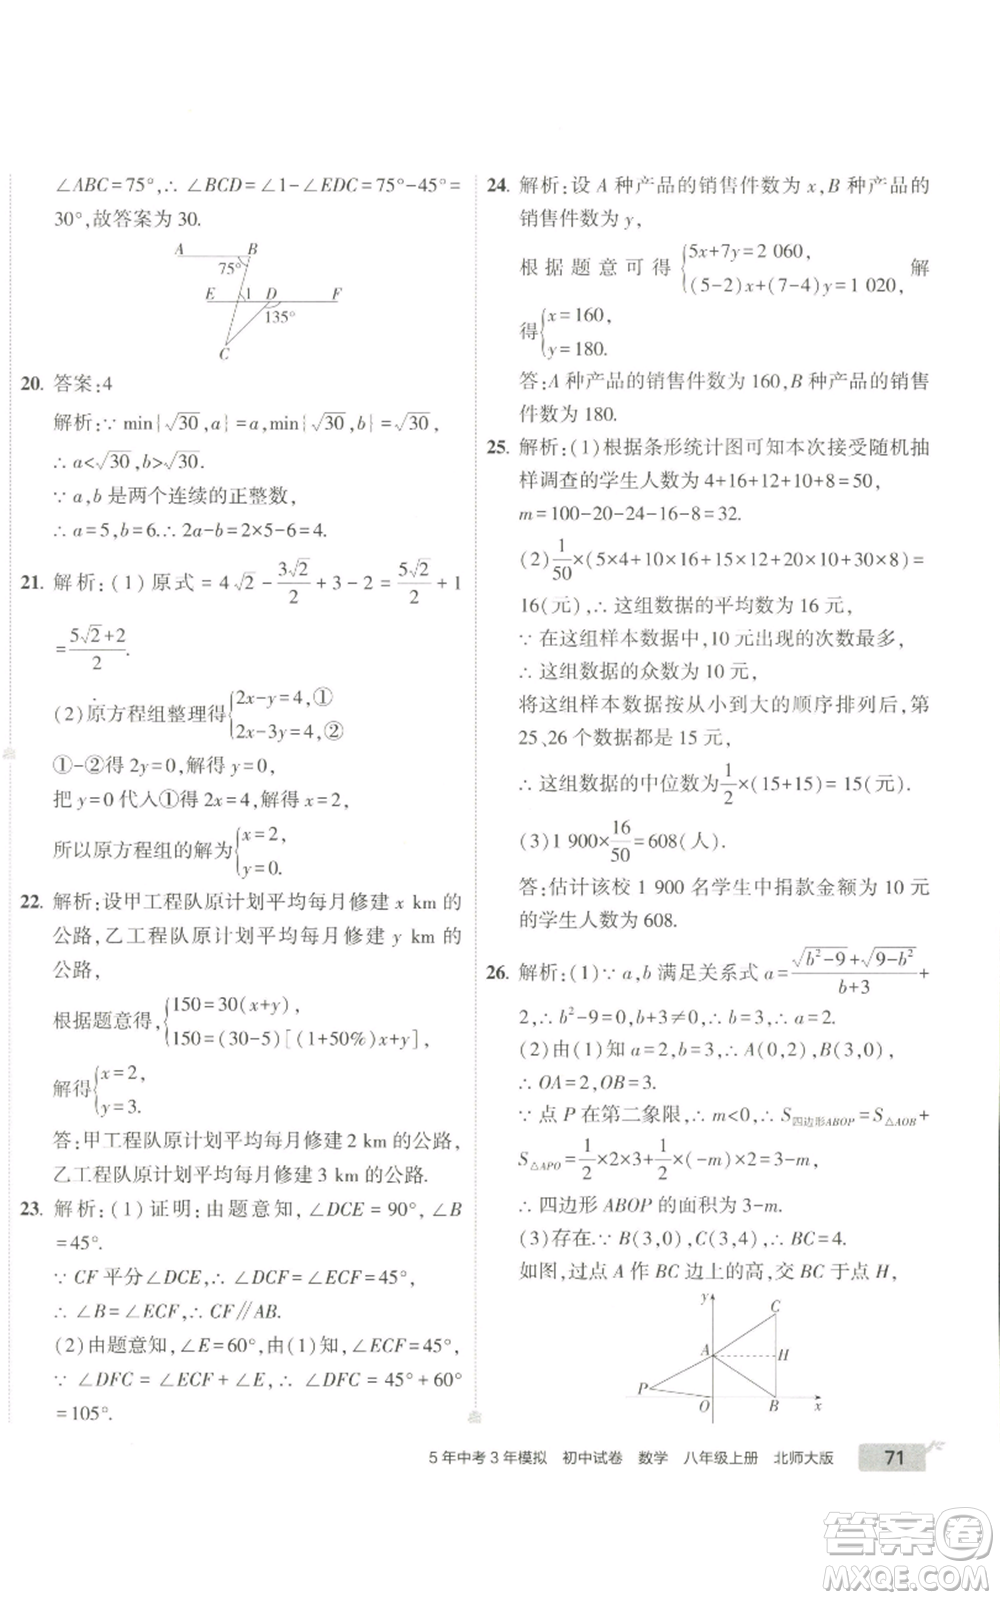 ∠ABC=75°,∴ ∠BCD=∠1-∠EDC=75°-45°=
30°,故答案为 30.
A B
75°
E 1 D F
135°
C
20. 答案:4
解析:∵ min{√30,a}=a,min{√30,b}=√30,
∴ a<√30,b>√30.
∵ a,b 是两个连续的正整数,
∴ a=5,b=6.∴ 2a-b=2×5-6=4.
21. 解析:(1)原式=4√2-3√2/2+3-2=5√2/2+1
=(5√2+2)/2.
(2)原方程组整理得{2x-y=4,①
2x-3y=4,②
①-②得 2y=0,解得 y=0.
把 y=0 代入①得 2x=4,解得 x=2,
所以原方程组的解为{x=2,
y=0.
22. 解析:设甲工程队原计划平均每月修建 x km 的
公路,乙工程队原计划平均每月修建 y km 的
公路,
根据题意得,{150=30(x+y),
150=(30-5)[(1+50%)x+y],
解得{x=2,
y=3.
答:甲工程队原计划平均每月修建 2 km 的公路,
乙工程队原计划平均每月修建 3 km 的公路.
23. 解析:(1)证明:由题意知,∠DCE=90°,∠B
=45°.
∵ CF 平分∠DCE,∴ ∠DCF=∠ECF=45°,
∴ ∠B=∠ECF,∴ CF∥AB.
(2)由题意知,∠E=60°,由(1)知,∠ECF=45°,
∵ ∠DFC=∠ECF+∠E,∴ ∠DFC=45°+60°
=105°.
24. 解析:设 A 种产品的销售件数为 x,B 种产品的
销售件数为 y,
根据题意可得{5x+7y=2 060,
(5-2)x+(7-4)y=1 020, 解
得{x=160,
y=180.
答:A 种产品的销售件数为 160,B 种产品的销售
件数为 180.
25. 解析:(1)根据条形统计图可知本次接受随机抽
样调查的学生人数为 4+16+12+10+8=50,
m=100-20-24-16-8=32.
(2)1/50×(5×4+10×16+15×12+20×10+30×8)=
16(元),∴ 这组数据的平均数为 16 元,
∵ 在这组样本数据中,10 元出现的次数最多,
∴ 这组数据的众数为 10 元,
将这组样本数据按从小到大的顺序排列后,第
25、26 个数据都是 15 元,
∴ 这组数据的中位数为1/2×(15+15)=15(元).
(3)1 900×16/50=608(人).
答:估计该校 1 900 名学生中捐款金额为 10 元
的学生人数为 608.
26. 解析:(1)∵ a,b 满足关系式 a=(√(b²-9)+√(9-b²))/(b+3)+
2,∴ b²-9=0,b+3≠0,∴ b=3,∴ a=2.
(2)由(1)知 a=2,b=3,∴ A(0,2),B(3,0),
∴ OA=2,OB=3.
∵ 点 P 在第二象限,∴ m<0,∴ S四边形ABOP=S△AOB+
S△APO=1/2×2×3+1/2×(-m)×2=3-m.
∴ 四边形 ABOP 的面积为 3-m.
(3)存在.∵ B(3,0),C(3,4),∴ BC=4.
如图,过点 A 作 BC 边上的高,交 BC 于点 H,
y C
A H
P
O B x
5 年中考 3 年模拟 初中试卷 数学 八年级上册 北师大版 71
答案卷